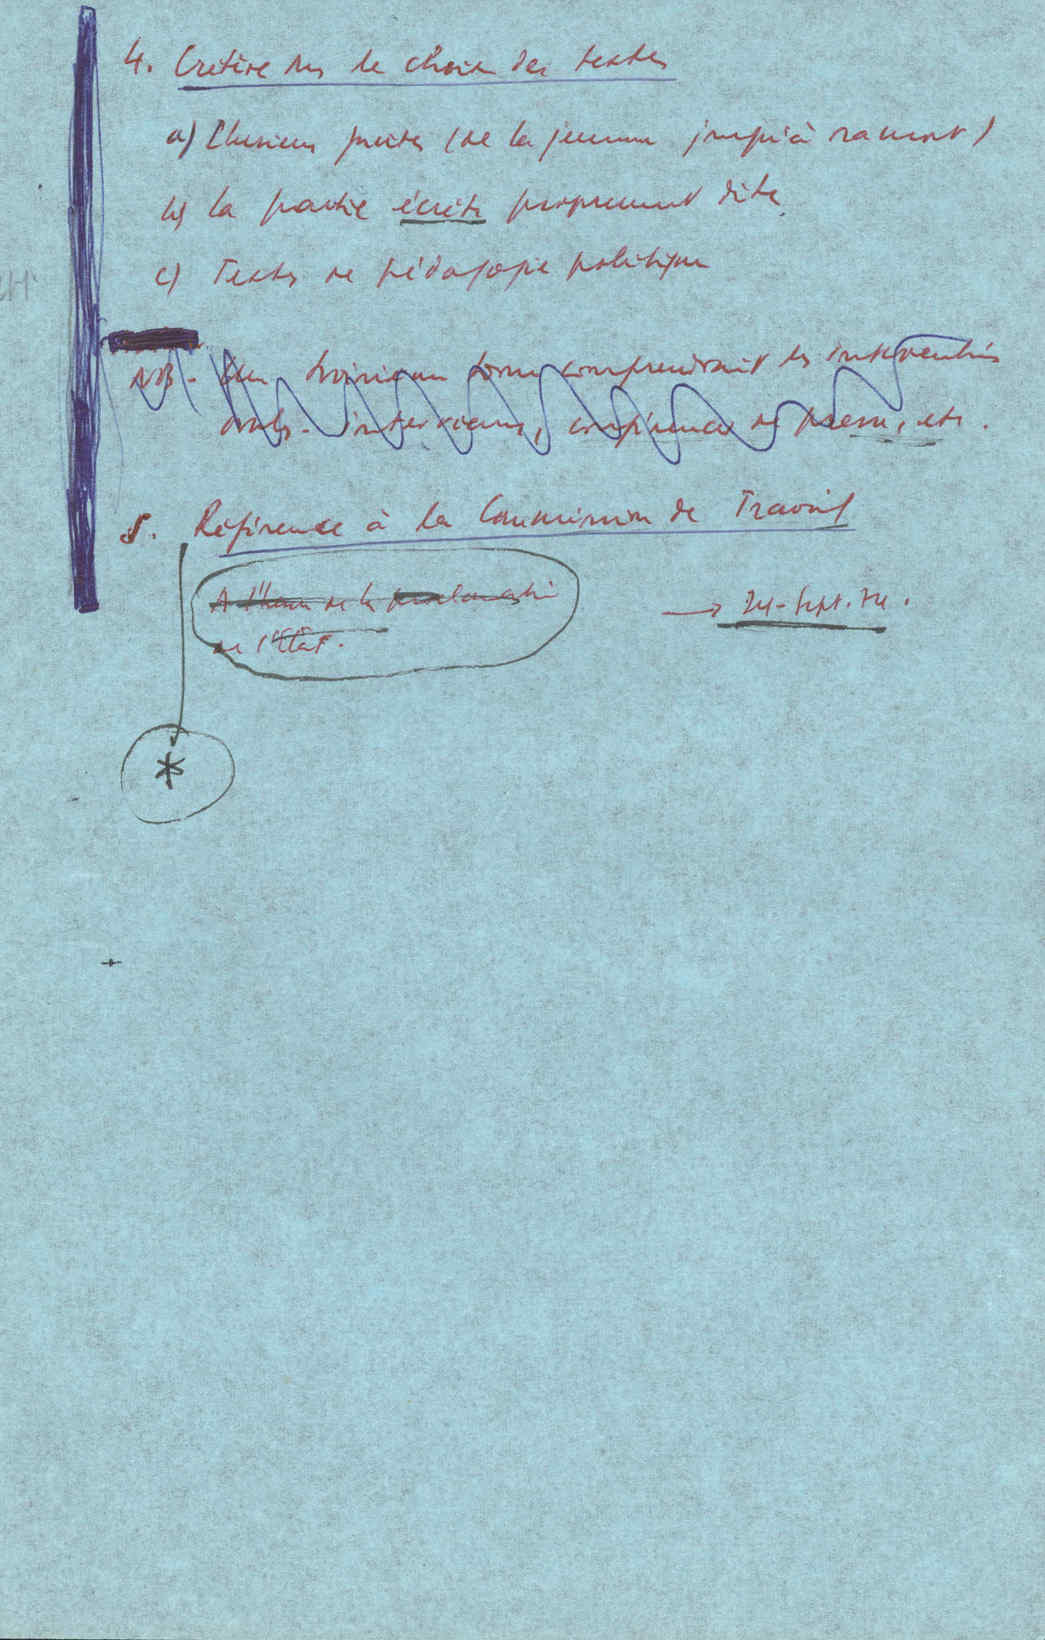 4. Critère sur le choix des textes
a) Plusieurs textes (de la jeunesse jusqu'à sa mort)
b) la partie écrite proprement dite
c) Textes de pédagogie politique
NB. Un troisième tome comprendrait les interventions
orales. interviews, conférences de presse, etc.
5. Référence à la Commission de Travail
A l'heure de la proclamation
de l'Etat.
→ 24-Sept. 74.
*